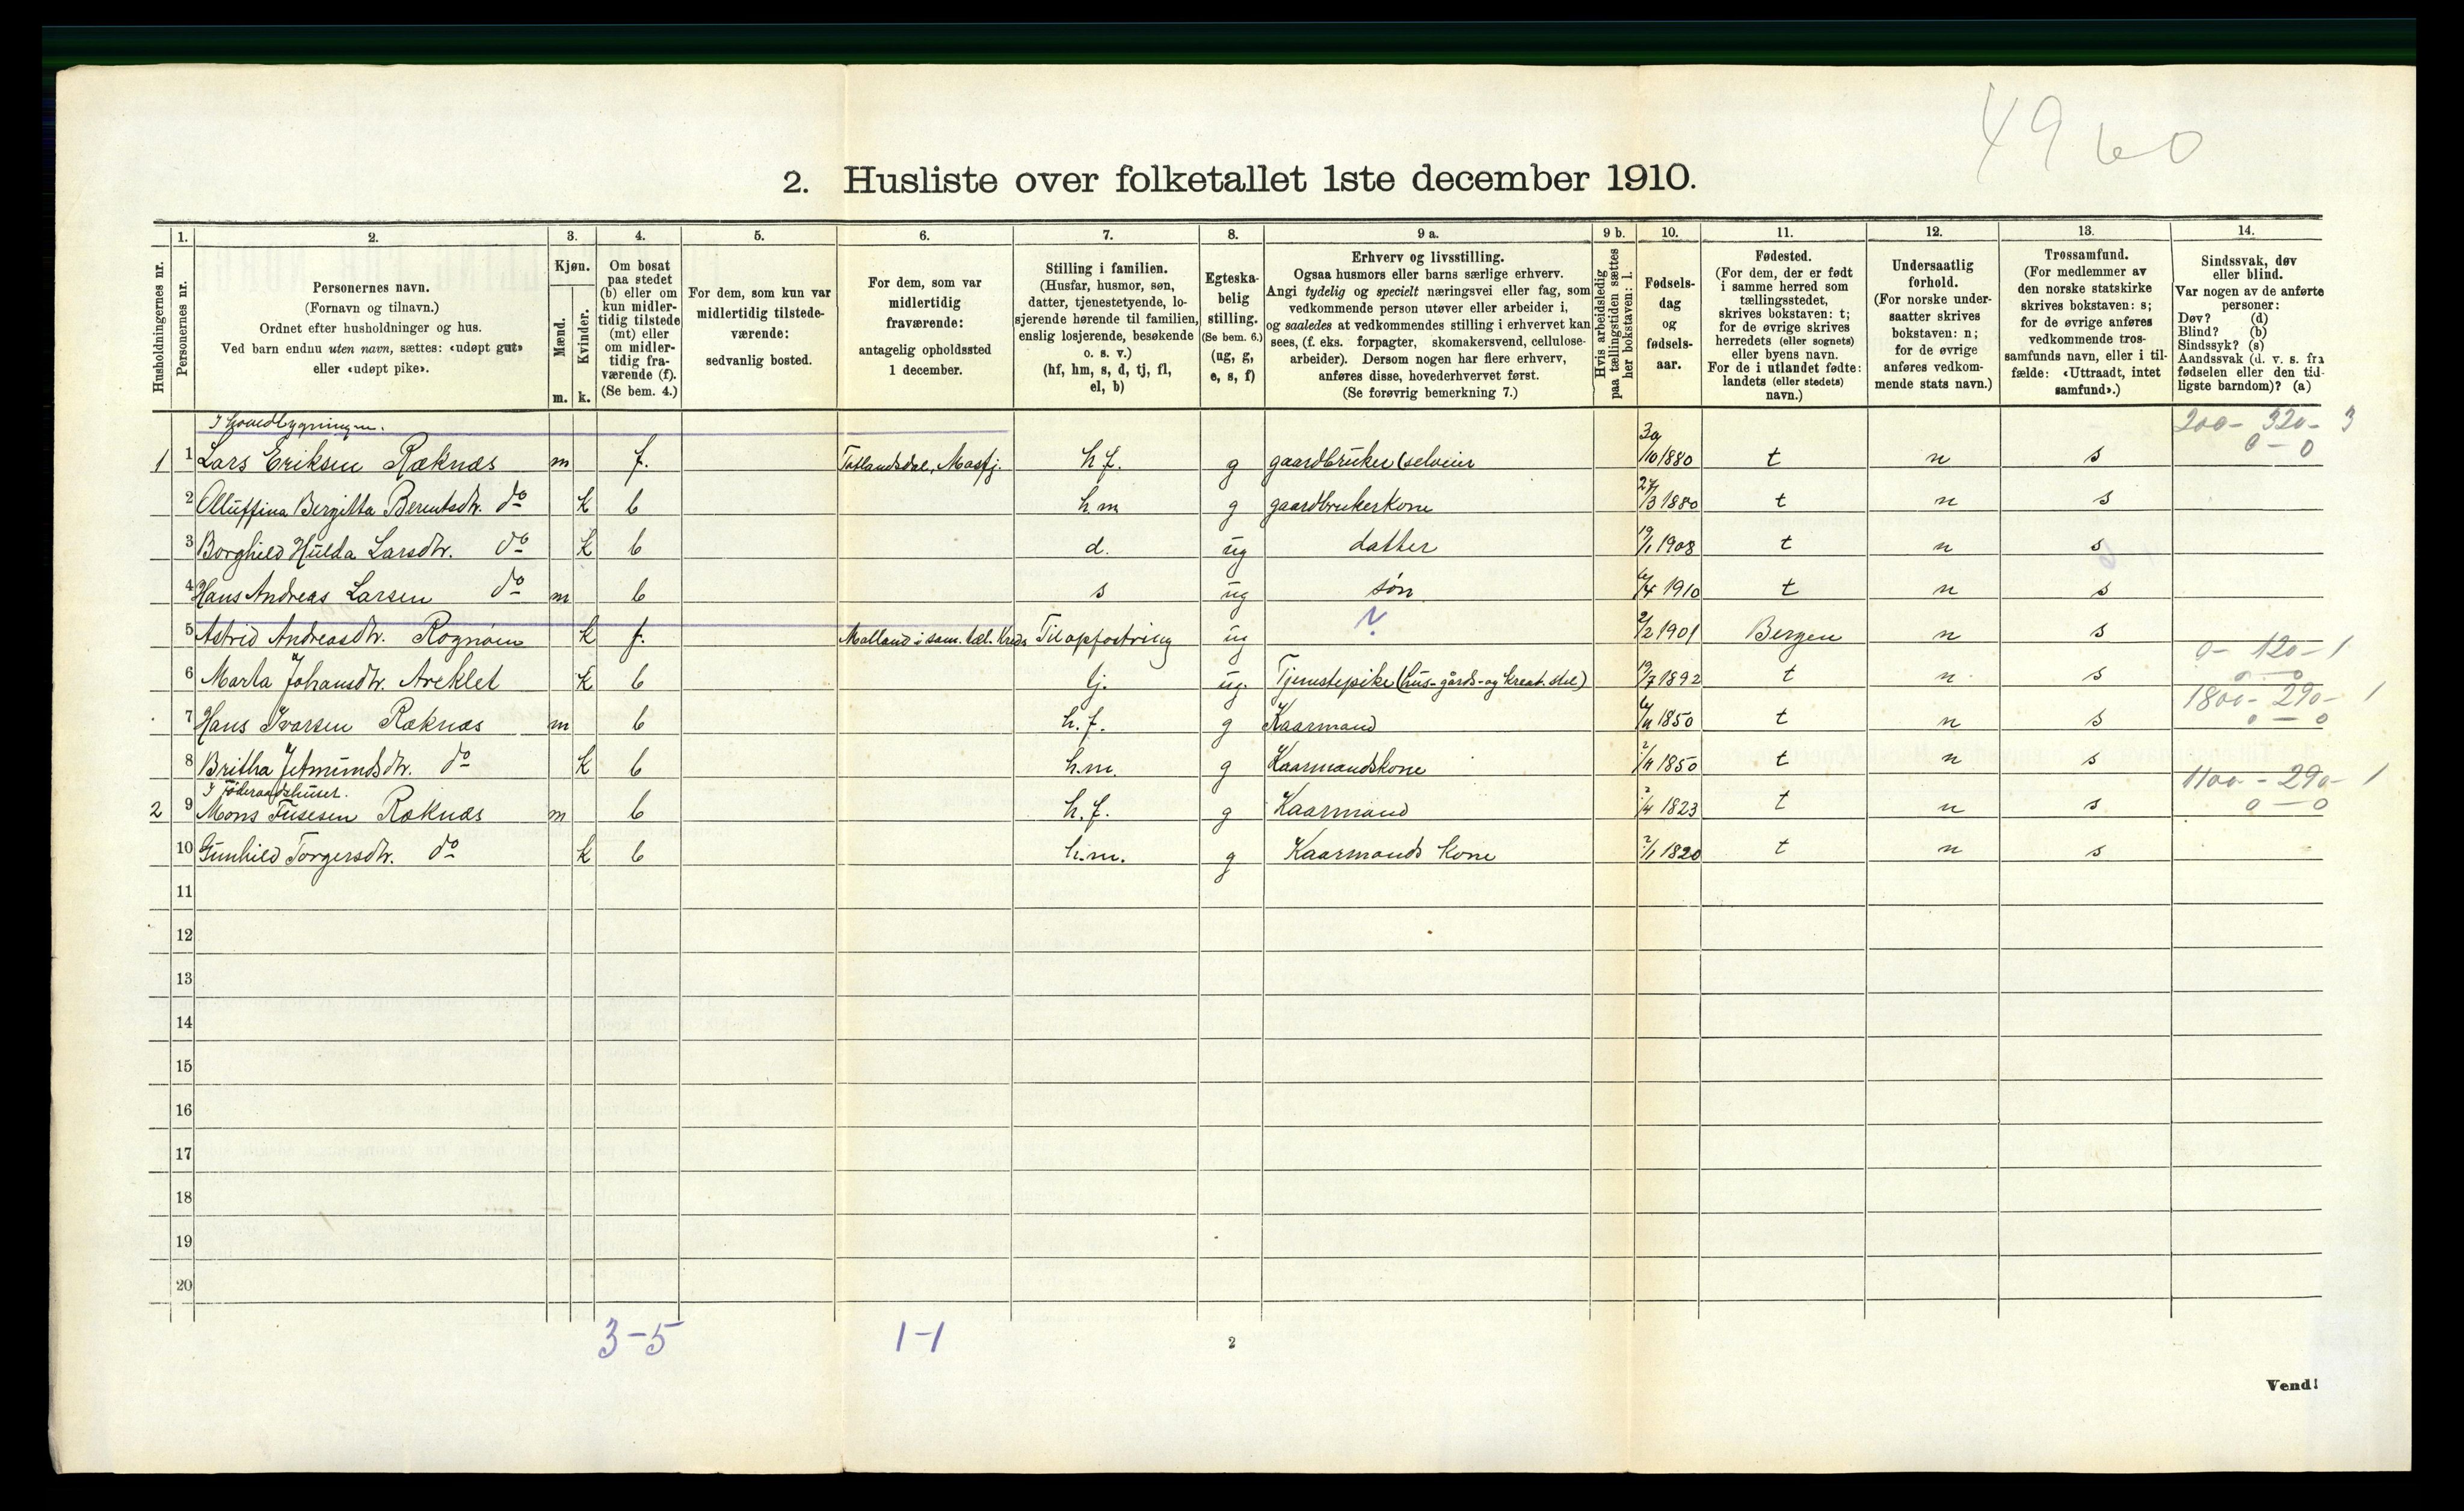 49 60
2. Husliste over folketallet 1ste december 1910.
Husholdningernes nr.
1. Personernes nr.
2. Personernes navn.
(Fornavn og tilnavn.)
Ordnet efter husholdninger og hus.
Ved barn endnu uten navn, sættes: «udøpt gut»
eller «udøpt pike».
3. Kjøn.
Mænd. m.
Kvinder. k.
4. Om bosat
paa stedet
(b) eller om
kun midler-
tidig tilstede
(mt) eller
om midler-
tidig fra-
værende (f).
(Se bem. 4.)
5. For dem, som kun var
midlertidig tilstede-
værende:
sedvanlig bosted.
6. For dem, som var
midlertidig
fraværende:
antagelig opholdssted
1 december.
7. Stilling i familien.
(Husfar, husmor, søn,
datter, tjenestetyende, lo-
sjerende hørende til familien,
enslig losjerende, besøkende
o. s. v.)
(hf, hm, s, d, tj, fl,
el, b)
8. Egteska-
belig
stilling.
(Se bem. 6.)
(ug, g,
e, s, f)
9 a. Erhverv og livsstilling.
Ogsaa husmors eller barns særlige erhverv.
Angi tydelig og specielt næringsvei eller fag, som
vedkommende person utøver eller arbeider i,
og saaledes at vedkommendes stilling i erhvervet kan
sees, (f. eks. forpagter, skomakersvend, cellulose-
arbeider). Dersom nogen har flere erhverv,
anføres disse, hovederhvervet først.
(Se forøvrig bemerkning 7.)
9 b. Hvis arbeidsledig
paa tællingstiden sættes
her bokstaven: l.
10. Fødsels-
dag
og
fødsels-
aar.
11. Fødested.
(For dem, der er født
i samme herred som
tællingsstedet,
skrives bokstaven: t;
for de øvrige skrives
herredets (eller sognets)
eller byens navn.
For de i utlandet fødte:
landets (eller stedets)
navn.)
12. Undersaatlig
forhold.
(For norske under-
saatter skrives
bokstaven: n;
for de øvrige
anføres vedkom-
mende stats navn.)
13. Trossamfund.
(For medlemmer av
den norske statskirke
skrives bokstaven: s;
for de øvrige anføres
vedkommende tros-
samfunds navn, eller i til-
fælde: «Uttraadt, intet
samfund».)
14. Sindssvak, døv
eller blind.
Var nogen av de anførte
personer:
Døv? (d)
Blind? (b)
Sindssyk? (s)
Aandssvak (d. v. s. fra
fødselen eller den tid-
ligste barndom)? (a)
I hovedbygningen.
200 - 320 - 3
0 - 0
1 1 Lars Eriksen Røknæs m f. Tatlandsdal, Masfj. h.f. g gaardbruker (selveier 30/10 1880 t n s
2 Olluffina Bergitta Berentsdtr. do k b h.m g gaardbrukerkone 27/3 1880 t n s
3 Borghild Hulda Larsdtr. do k b d. ug datter 19/1 1908 t n s
4 Hans Andreas Larsen do m b s ug søn 6/4 1910 t n s
5 Astrid Andreasdtr. Rognøien k f. Molland i sam. tæl. Kreds Til opfostring ug ? 2/2 1901 Bergen n s
0 - 120 - 1
0 - 0
6 Marta Johansdtr. Areklet k b tj. ug. Tjenstepike (hus- gårds- og kreat. stel) 19/7 1892 t n s
1800 - 290 - 1
0 - 0
7 Hans Ivarsen Røknæs m b h.f. g Kaarmand 6/11 1850 t n s
8 Britha Jetmundsdtr. do k b h.m. g Kaarmandskone 2/11 1850 t n s
I Føderaadshuset.
1100 - 290 - 1
0 - 0
2 9 Mons Fusesen Røknæs m b h.f. g Kaarmand 2/4 1823 t n s
10 Gunhild Torgersdtr. do k b h.m. g Kaarmands kone 2/1 1820 t n s
11
12
13
14
15
16
17
18
19
20
3-5
1-1
2
Vend!